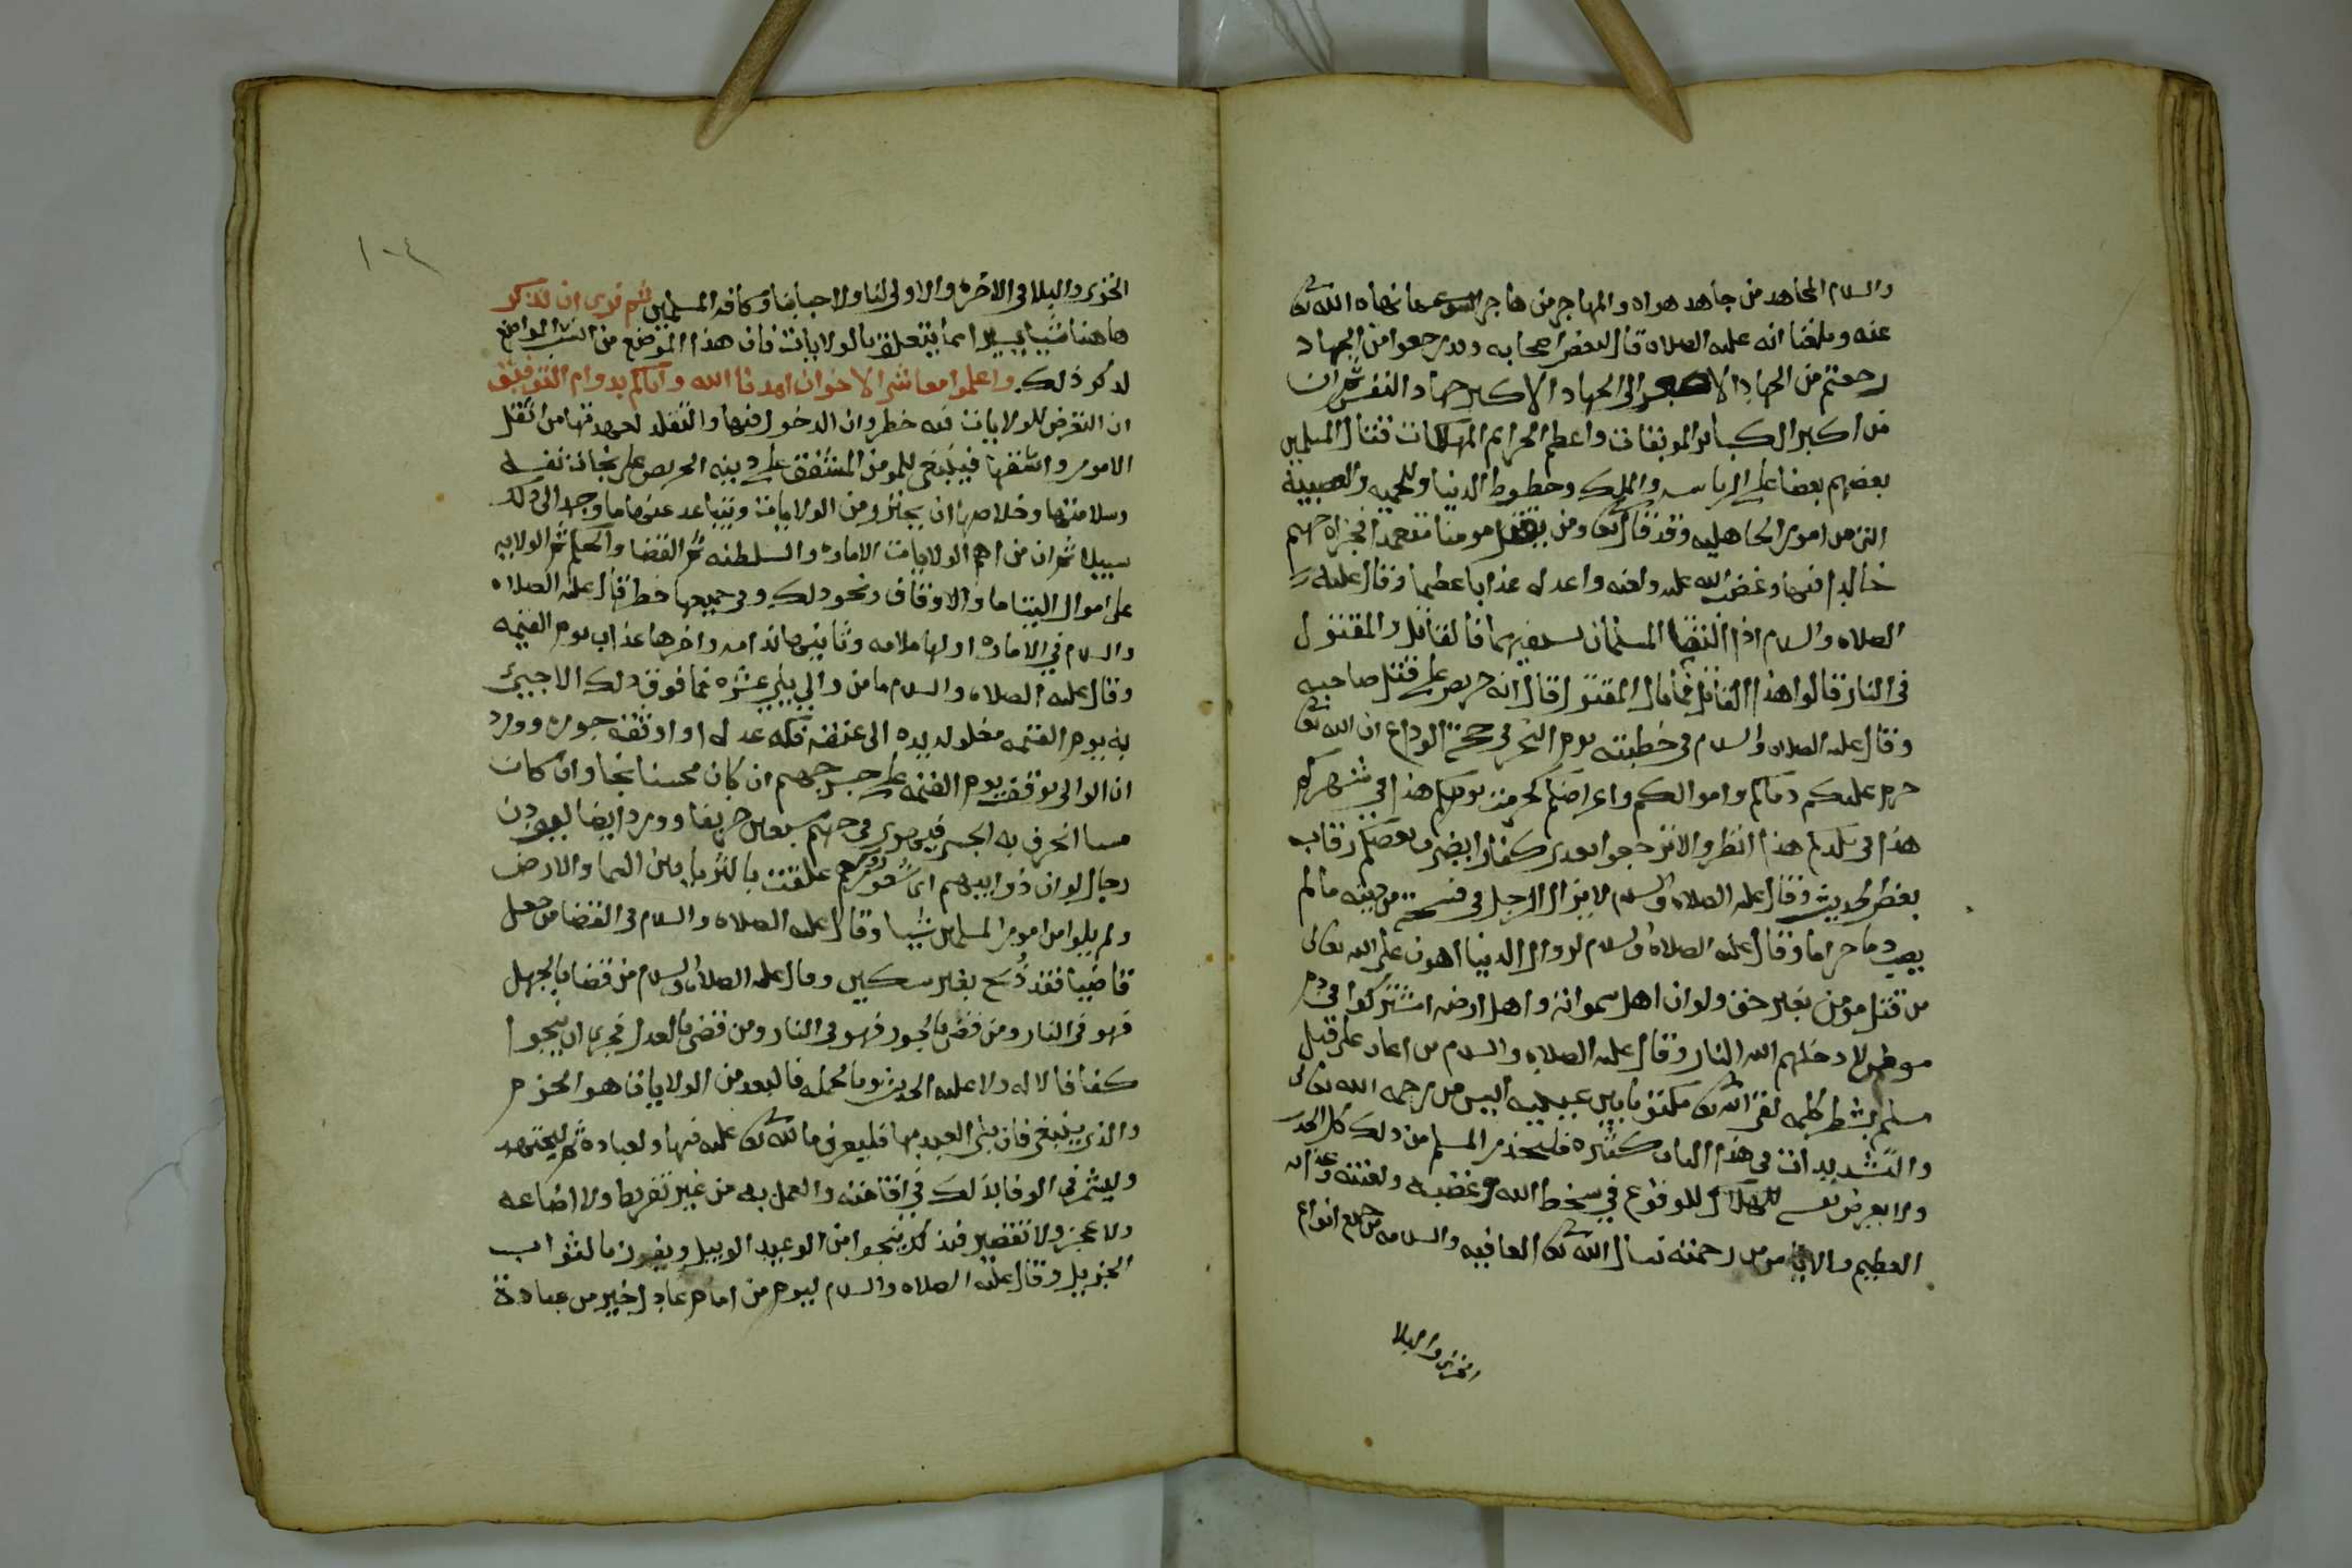 والسلام المجاهد من جاهد هواه والمهاجر من هاجر السوء مما نهاه الله تعالى
عنه وبلغنا انه عليه الصلاة قال لبعض اصحابه وقد رجعوا من الجهاد
رجعتم من الجهاد الاصغر الى الجهاد الاكبر جهاد النفس ثم ان
من اكبر الكبائر الموبقات واعظم الجرايم المهلكات قتال المسلمين
بعضهم بعضا على الرياسه والملك وحظوظ الدنيا وللحميه والعصبية
التى من امور الجاهليه وقد قال تعالى ومن يقتل مومنا متعمدا فجزاه جهنم
خالدا فيها وغضب الله عليه ولعنه واعد له عذابا عظيما وقال عليه
الصلاه والسلام اذا التقا المسلمان بسيفيهما فالقاتل والمقتول
فى النار قالوا هذا القاتل فما بال المقتول قال انه حريص على قتل صاحبه
وقال عليه الصلاه والسلام فى خطبته يوم النحر فى حجة الوداع ان الله تعالى
حرم عليكم دماكم واموالكم واعراضكم كحرمة يومكم هذا في شهركم
هذا فى بلدكم هذا انظروا لا ترجعوا بعدى كفارا يضرب بعضكم رقاب
بعض الحديث وقال عليه الصلاة والسلام لا يزال الرجل فى فسحة من دينه ما لم
يصب دما حراما وقال عليه الصلاة والسلام لزوال الدنيا اهون على الله تعالى
من قتل مومن بغير حق ولو ان اهل سمواته واهل ارضه اشتركوا في دم
مومن لادخلهم الله النار وقال عليه الصلاه والسلام من اعان على قتل
مسلم بشطر كلمه لقى الله تعالى مكتوبا بين عينيه اليس من رحمه الله تعالى
والتشديدات في هذا الباب كثيره فليحذر المسلم من ذلك كل الحذر
ولا يعرض نفسه للهلاك للوقوع في سخط الله وغضبه ولعنته وعذابه
العظيم والاياس من رحمته نسال الله تعالى العافيه والسلامه من جميع انواع
الخزى والبلا
١٠٤
الخزى والبلا فى الاخرة والاولى لنا ولاحبابنا وكافه المسلمين ثم نرى ان نذكر
هاهنا شيئا يسيرا مما يتعلق بالولايات فان هذا الموضع من انسب المواضع
لذكر ذلك واعلموا معاشر الاخوان امدنا الله واياكم بدوام التوفيق
ان التعرض للولايات فيه خطر وان الدخول فيها والتقلد لعهدتها من اثقل
الامور واشقها فينبغى للمومن المشفق على دينه الحريص على نجاة نفسه
وسلامتها وخلاصها ان يحترز من الولايات ويتباعد عنها ما وجد الى ذلك
سبيلا ثم ان من اهم الولايات الاماره والسلطنه ثم القضا والحكم ثم الولايه
على اموال اليتاما والاوقاف ونحو ذلك وفى جميعها خطر قال عليه الصلاه
والسلام في الاماره اولها ملامه وثانيها ندامه واخرها عذاب يوم القيمه
وقال عليه الصلاه والسلام ما من والى يلى عشره فما فوق ذلك الا جيئ
به يوم القيمه مغلوله يده الى عنقه فكه عدله او اوثقه جوره وورد
ان الوالى يوقف يوم القيمه على جسر جهنم ان كان محسنا نجا وان كان
مسيا انخرق به الجسر فيهوى فى جهنم سبعين خريفا وورد ايضا ليودن
رجال لو ان ذوايبهم اى شعورهم علقت بالثريا بين السما والارض
ولم يلوا من امور المسلمين شيا وقال عليه الصلاه والسلام فى القضا من جعل
قاضيا فقد ذُبح بغير سكين وقال عليه الصلاة والسلام من قضا بالجهل
فهو فى النار ومن قضى بالجور فهو فى النار ومن قضى بالعدل فحرى ان ينجوا
كفافا لا له ولا عليه الحديث وبالجمله فالبعد من الولايات هو الحزم
والذى ينبغى فان بلى العبد بها فليعرف ما لله تعالى عليه فيها ولعباده ثم ليجتهد
وليشمر في الوفا بذلك في اقامته والعمل به من غير تفريط ولا اضاعه
ولا عجز ولا تقصير فبذلك ينجوا من الوعيد الوبيل ويفوز بالثواب
الجزيل وقال عليه الصلاه والسلام ليوم من امام عادل خير من عبادة